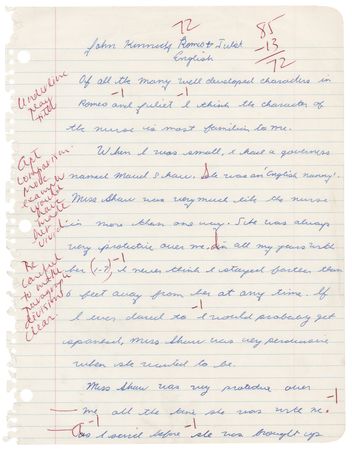 72
85
-13
72
John Kennedy Romeo + Juliet
English
Underline
play
title
Of all the many well developed characters in
-1 -1
Romeo and Juliet I think the character of
the nurse is most familiar to me.
Apt
comparison.
More
examples
would
have
made
it
vivid.
When I was small, I had a governess
named Maud Shaw. She was an "English nanny".
Miss Shaw was very much like the nurse
in more than one way. She was always
very protective over me. In all my years with
Be
careful
to make
paragraph
divisions
clear.
her (1-7) -1 I never think I stayed farther than
feet away from her at any time. If
-1
I ever dared to I would probably get
spanked, Miss Shaw was very persuasive
when she wanted to be.
Miss Shaw was very protective over
me all the time she was with me. -1
-1 -1
As I said before she was brought up